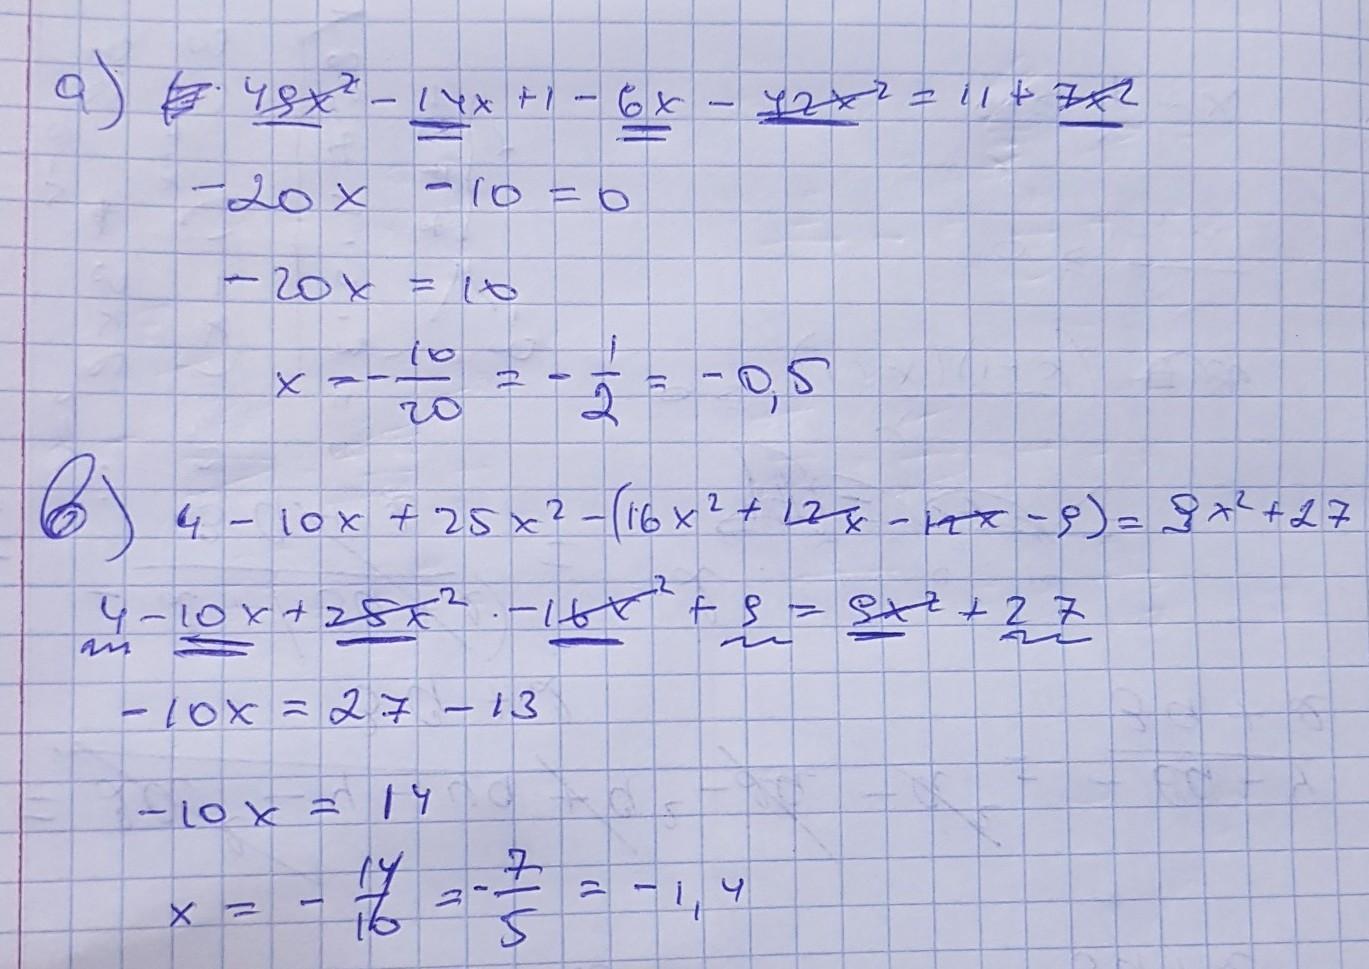 а) 49x² - 14x + 1 - 6x - 42x² = 11 + 7x²
-20x - 10 = 0
-20x = 10
x = -10/20 = -1/2 = -0,5
б) 4 - 10x + 25x² - (16x² + 12x - 12x - 9) = 9x² + 27
4 - 10x + 25x² - 16x² + 9 = 9x² + 27
-10x = 27 - 13
-10x = 14
x = -14/10 = -7/5 = -1,4